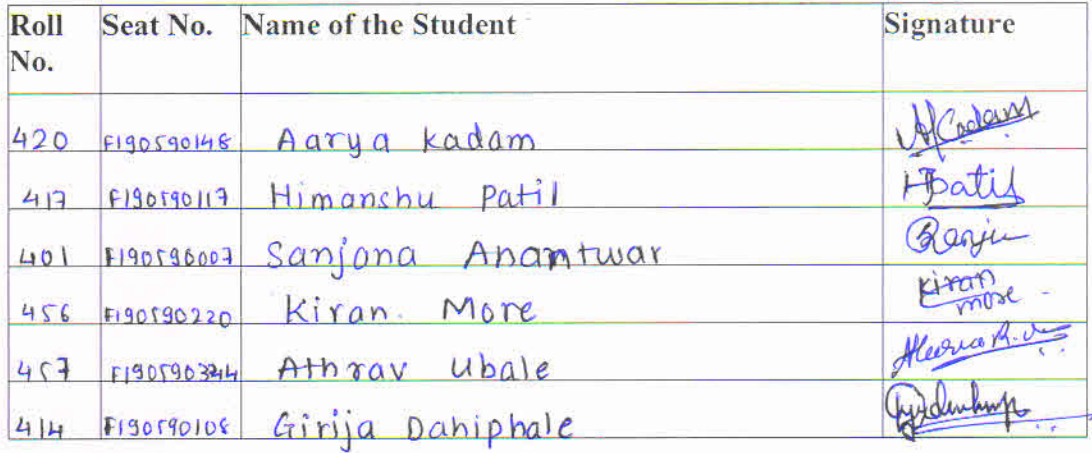 Roll No. Seat No. Name of the Student Signature
420 F190590148 Aarya Kadam AKadam
417 F190590117 Himanshu Patil HPatil
401 F190596007 Sanjana Anamtwar
456 F190590220 Kiran. More Kiran more
457 F190590344 Athrav Ubale
414 F190590108 Girija Dahiphale